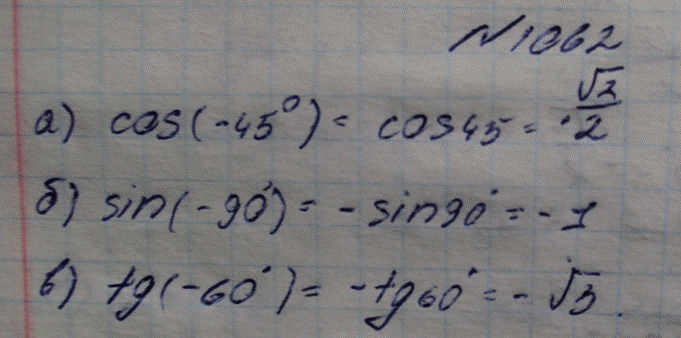 №1062
а) cos(-45°) = cos45 = √2/2
б) sin(-90°) = -sin90° = -1
в) tg(-60°) = -tg60° = -√3.